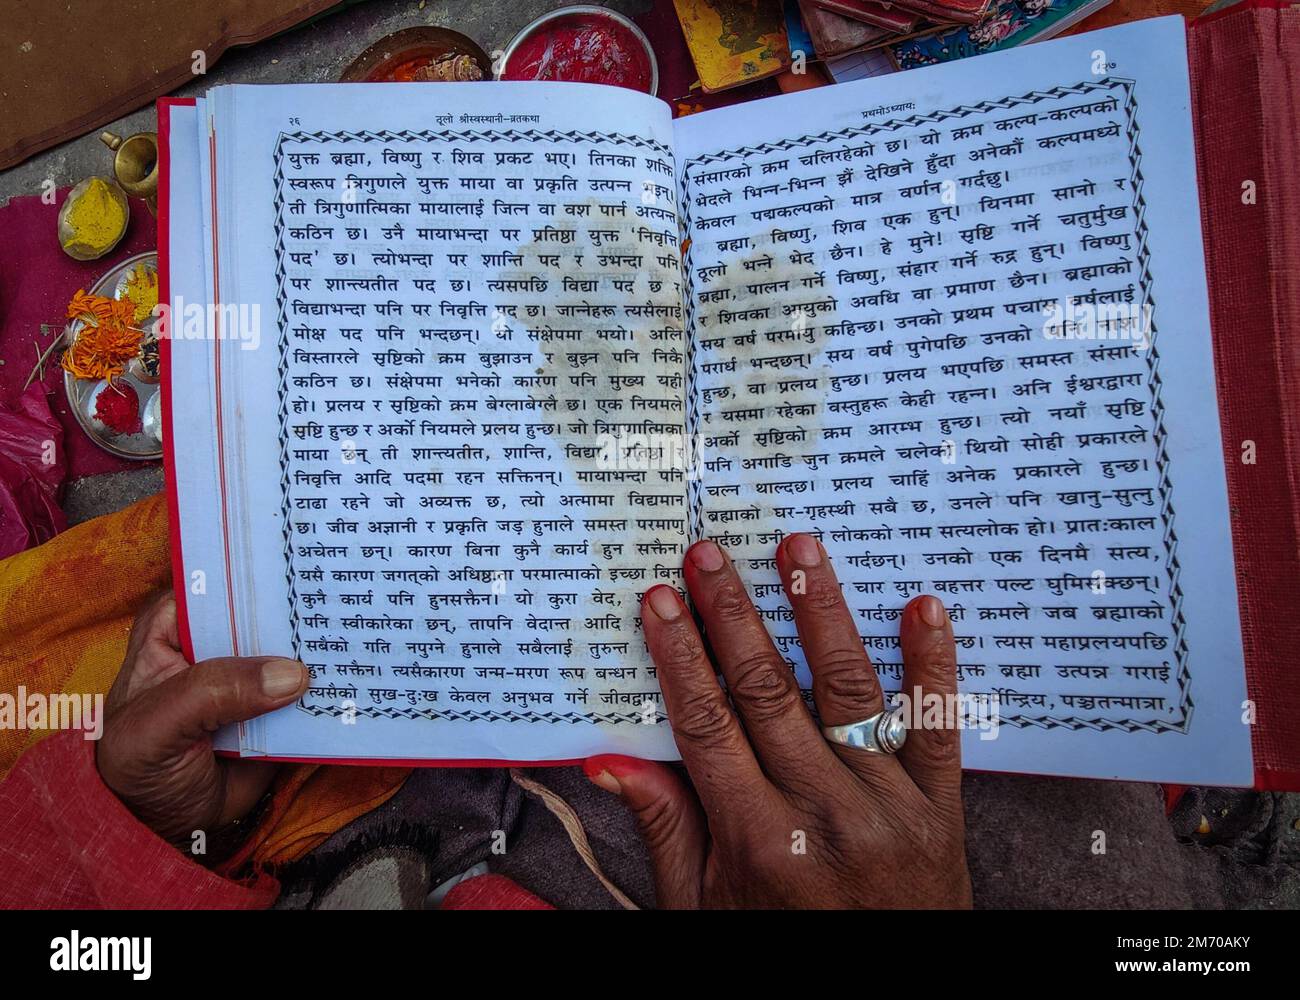 २६
ठूलो श्रीस्वस्थानी-व्रतकथा
युक्त ब्रह्मा, विष्णु र शिव प्रकट भए। तिनका शक्ति
स्वरूप त्रिगुणले युक्त माया वा प्रकृति उत्पन्न भइन्।
ती त्रिगुणात्मिका मायालाई जित्न वा वश पार्न अत्यन्त
कठिन छ। उनै मायाभन्दा पर प्रतिष्ठा युक्त 'निवृत्ति
पद' छ। त्योभन्दा पर शान्ति पद र उभन्दा पनि
पर शान्त्यतीत पद छ। त्यसपछि विद्या पद छ र
विद्याभन्दा पनि पर निवृत्ति पद छ। जान्नेहरू त्यसैलाई
मोक्ष पद पनि भन्दछन्। यो संक्षेपमा भयो। अलि
विस्तारले सृष्टिको क्रम बुझाउन र बुझ्न पनि निकै
कठिन छ। संक्षेपमा भनेको कारण पनि मुख्य यही
हो। प्रलय र सृष्टिको क्रम बेग्लाबेग्लै छ। एक नियमले
सृष्टि हुन्छ र अर्को नियमले प्रलय हुन्छ। जो त्रिगुणात्मिका
माया छन् ती शान्त्यतीत, शान्ति, विद्या, प्रतिष्ठा र
निवृत्ति आदि पदमा रहन सक्तिनन्। मायाभन्दा पनि
टाढा रहने जो अव्यक्त छ, त्यो आत्मामा विद्यमान
छ। जीव अज्ञानी र प्रकृति जड़ हुनाले समस्त परमाणु
अचेतन छन्। कारण बिना कुनै कार्य हुन सक्तैन।
यसै कारण जगत्को अधिष्ठाता परमात्माको इच्छा बिना
कुनै कार्य पनि हुनसक्तैन। यो कुरा वेद,
पनि स्वीकारेका छन्, तापनि वेदान्त आदि
सबैको गति नपुग्ने हुनाले सबैलाई तुरुन्त
हुन सक्तैन। त्यसैकारण जन्म-मरण रूप बन्धन
त्यसैको सुख-दुःख केवल अनुभव गर्ने
प्रथमोऽध्यायः
२७
संसारको क्रम चलिरहेको छ। यो क्रम कल्प-कल्पको
भेदले भिन्न-भिन्न झैं देखिने हुँदा अनेकौं कल्पमध्ये
केवल पद्मकल्पको मात्र वर्णन गर्दछु।
ब्रह्मा, विष्णु, शिव एक हुन्। यिनमा सानो र
ठूलो भन्ने भेद छैन। हे मुने! सृष्टि गर्ने चतुर्मुख
ब्रह्मा, पालन गर्ने विष्णु, संहार गर्ने रुद्र हुन्। विष्णु
र शिवका आयुको अवधि वा प्रमाण छैन। ब्रह्माको
सय वर्ष परमायु कहिन्छ। उनको प्रथम पचास वर्षलाई
परार्ध भन्दछन्। सय वर्ष पुगेपछि उनको पनि नाश
हुन्छ, वा प्रलय हुन्छ। प्रलय भएपछि समस्त संसार
र यसमा रहेका वस्तुहरू केही रहन्न। अनि ईश्वरद्वारा
अर्को सृष्टिको क्रम आरम्भ हुन्छ। त्यो नयाँ सृष्टि
पनि अगाडि जुन क्रमले चलेको थियो सोही प्रकारले
चल्न थाल्दछ। प्रलय चाहिं अनेक प्रकारले हुन्छ।
ब्रह्माको घर-गृहस्थी सबै छ, उनले पनि खानु-सुत्नु
गर्दछ। लोकको नाम सत्यलोक हो। प्रातःकाल
गर्दछन्। उनको एक दिनमै सत्य,
चार युग बहत्तर पल्ट घुमिसक्छन्।
क्रमले जब ब्रह्माको
त्यस महाप्रलयपछि
युक्त ब्रह्मा उत्पन्न गराई
कर्मेन्द्रिय, पञ्चतन्मात्रा,
alamy
Image ID: 2M70AKY
www.alamy.com